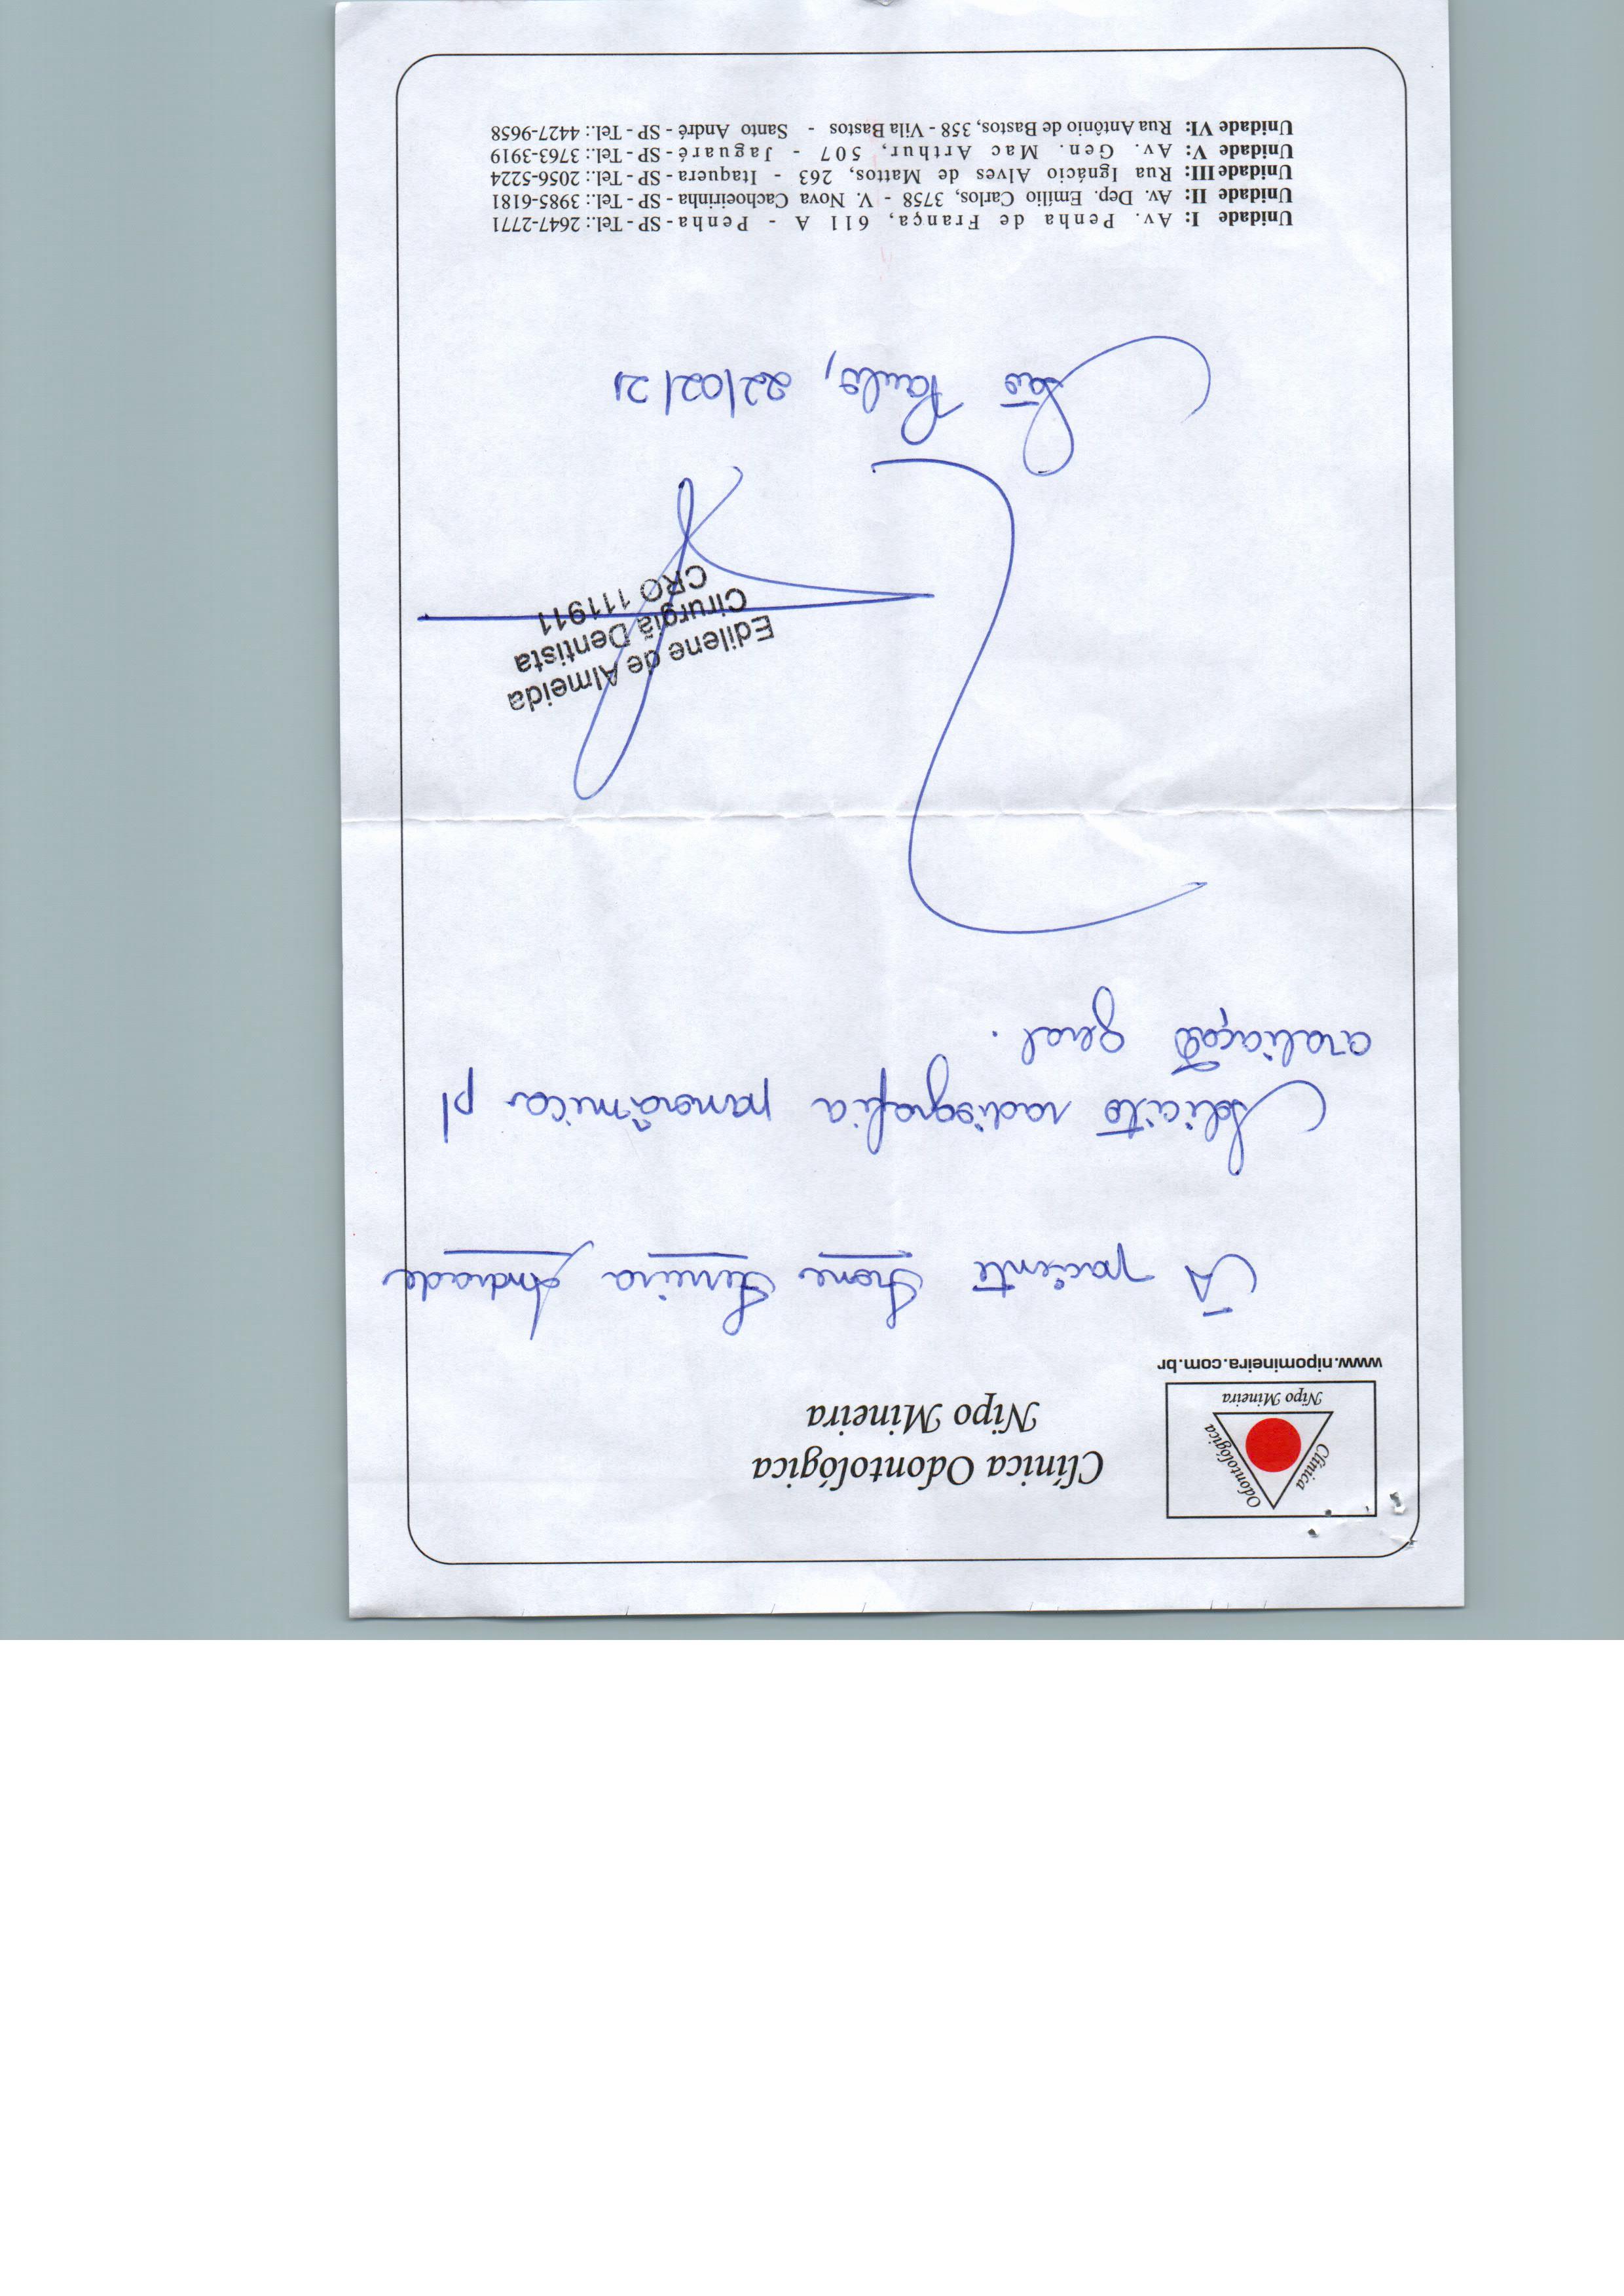 Clínica
Odontológica
Nipo Mineira
www.nipomineira.com.br
Clínica Odontológica
Nipo Mineira
À paciente Irone Ferreira Andrade
Solicito radiografia panorâmica p/
avaliação geral.
Edilene de Almeida
Cirurgiã Dentista
CRO 111911
São Paulo, 22/02/21
Unidade I: Av. Penha de França, 611 A - Penha - SP - Tel.: 2647-2771
Unidade II: Av. Dep. Emílio Carlos, 3758 - V. Nova Cachoeirinha - SP - Tel.: 3985-6181
Unidade III: Rua Ignácio Alves de Mattos, 263 - Itaquera - SP - Tel.: 2056-5224
Unidade V: Av. Gen. Mac Arthur, 507 - Jaguaré - SP - Tel.: 3763-3919
Unidade VI: Rua Antônio de Bastos, 358 - Vila Bastos - Santo André - SP - Tel.: 4427-9658